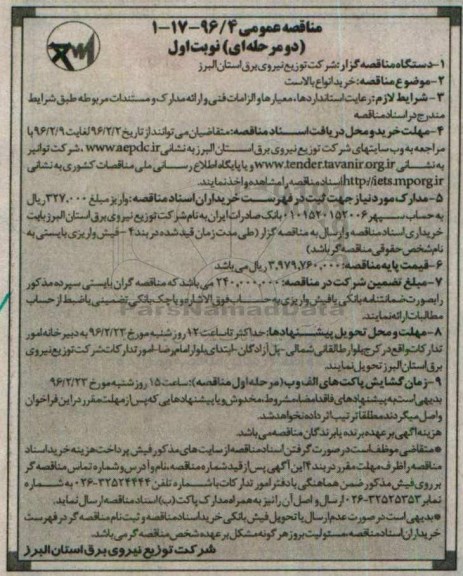 مناقصه عمومی ۹۶/۴-۱۷-۱
(دو مرحله‌ای) نوبت اول
۱-دستگاه مناقصه گزار: شرکت توزیع نیروی برق استان البرز
۲-موضوع مناقصه: خرید انواع بالاست
۳- شرایط لازم: رعایت استانداردها، معیارها و الزامات فنی و ارائه مدارک و مستندات مربوطه طبق شرایط
مندرج در اسناد مناقصه
۴-مهلت خرید و محل دریافت اسناد مناقصه: متقاضیان می توانند از تاریخ ۹۶/۲/۲ لغایت ۹۶/۲/۹ با
مراجعه به وب سایتهای شرکت توزیع نیروی برق استان البرز به نشانی www.aepdc.ir، شرکت توانیر
به نشانی www.tender.tavanir.org.ir و یا پایگاه اطلاع رسانی ملی مناقصات کشوری به نشانی
http://iets.mporg.ir اسناد مناقصه را مشاهده و اخذ نمایند.
۵-مدارک مورد نیاز جهت ثبت در فهرست خریداران اسناد مناقصه: واریز مبلغ ۳۲۷,۰۰۰ ریال
به حساب سپهر ۰۱۰۱۵۲۰۱۵۲۰۰۶ بانک صادرات ایران به نام شرکت توزیع نیروی برق استان البرز بابت
خریداری اسناد مناقصه و ارسال به مناقصه گزار (طی مدت زمان قید شده در بند ۴ -فیش واریزی بایستی به
نام شخص حقوقی مناقصه گر باشد)
۶-قیمت پایه مناقصه: ۳,۹۷۹,۷۶۰,۰۰۰ ریال می باشد
۷-مبلغ تضمین شرکت در مناقصه: ۲۴۰,۰۰۰,۰۰۰ می باشد که مناقصه گران بایستی سپرده مذکور
را بصورت ضمانتنامه بانکی یا فیش واریزی به حساب فوق الاشاره و یا چک بانکی تضمینی یا ضبط از حساب
مطالبات ارائه نمایند.
۸-مهلت و محل تحویل پیشنهادها: حداکثر تا ساعت ۱۲ روز شنبه مورخ ۹۶/۲/۲۳ به دبیرخانه امور
تدارکات واقع در کرج بلوار طالقانی شمالی -پل آزادگان -ابتدای بلوار امام رضا -امور تدارکات شرکت توزیع نیروی
برق استان البرز تحویل نمایند.
۹-زمان گشایش پاکت های الف و ب (مرحله اول مناقصه): ساعت ۱۵ روز شنبه مورخ ۹۶/۲/۲۳
بدیهی است به پیشنهادهای فاقد امضا، مشروط، مخدوش و یا پیشنهادهایی که پس از مهلت مقرر در این فراخوان
واصل میگردند مطلقا ترتیب اثر داده نخواهد شد.
هزینه آگهی بر عهده برنده یا برندگان مناقصه می باشد.
*متقاضی موظف است در صورت گرفتن اسناد مناقصه از سایت های مذکور فیش پرداخت هزینه خرید اسناد
مناقصه را ظرف مهلت مقرر در بند ۴ این آگهی پس از قید شماره مناقصه، نام و آدرس و شماره تماس مناقصه گر
بر روی فیش مذکور ضمن هماهنگی با دفتر امور تدارکات با شماره تلفن ۳۲۵۲۴۴۴۴-۰۲۶ به شماره
نمابر ۳۲۵۲۵۳۵۳-۰۲۶ ارسال و اصل آن را نیز به همراه مدارک پاکت (ب) اسناد مناقصه ارسال نماید.
*بدیهی است در صورت عدم ارسال یا تحویل فیش بانکی خرید اسناد مناقصه و ثبت نام مناقصه گر در فهرست
خریداران اسناد مناقصه مسئولیت بروز هر گونه مشکل بر عهده شخص مناقصه گر می باشد.
شرکت توزیع نیروی برق استان البرز
ParsNamadData